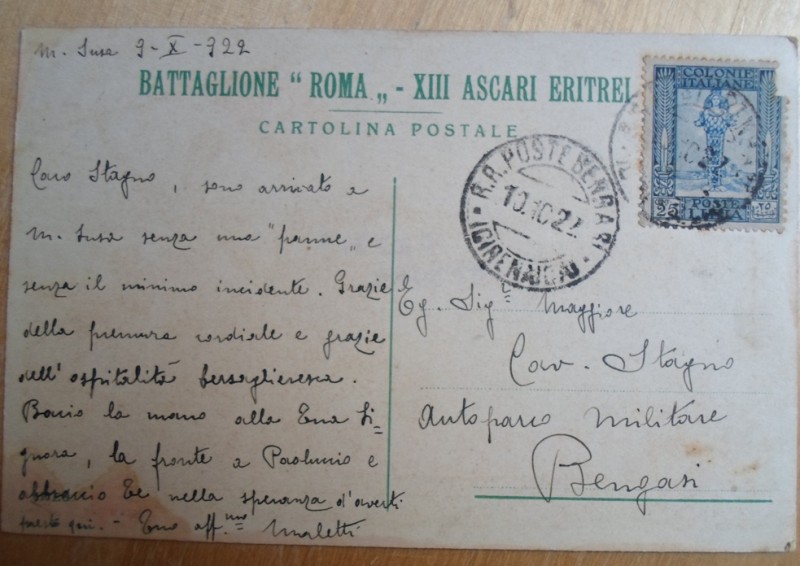 M. Susa 9-X-922
BATTAGLIONE "ROMA„ - XIII ASCARI ERITREI
CARTOLINA POSTALE
COLONIE
ITALIANE
25
POSTE
LIBIA
R.R. POSTE BENGASI
10.10.22
(CIRENAICA)
Caro Stagno, sono arrivato a
M. Susa senza una "panne" e
senza il minimo incidente. Grazie
della premura cordiale e grazie
dell'ospitalità bersaglieresca.
Bacio la mano alla Tua Si-
gnora, la fronte a Paoluccio e
abbraccio Te nella speranza d'averti
presto qui. - Tuo aff.mo Maletti
Eg. Sig Maggiore
Cav. Stagno
Autoparco Militare
Bengasi